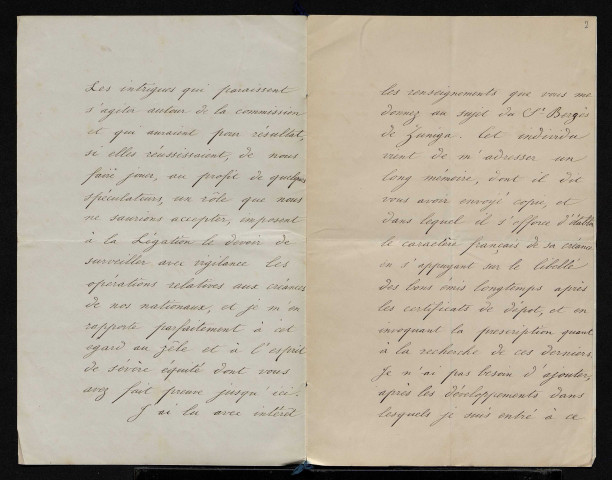 Les intrigues qui paraissent
s'agiter autour de la commission
et qui auraient pour résultat,
si elles réussissaient, de nous
faire jouer, au profit de quelques
spéculateurs, un rôle que nous
ne saurions accepter, imposent
à la Légation le devoir de
surveiller avec vigilance les
opérations relatives aux créances
de nos nationaux, et je m'en
rapporte parfaitement à cet
égard au zèle et à l'esprit
de sévère équité dont vous
avez fait preuve jusqu'ici.
J'ai lu avec intérêt
2
les renseignements que vous me
donnez au sujet du Sr Bergès
de Zuniga. Cet individu
vient de m'adresser un
long mémoire, dont il dit
vous avoir envoyé copie, et
dans lequel il s'efforce d'établir
le caractère français de sa créance
en s'appuyant sur le libellé
des bons émis longtemps après
les certificats de dépôt, et en
invoquant la prescription quant
à la recherche de ces derniers.
Je n'ai pas besoin d'ajouter,
après les développements dans
lesquels je suis entré à ce